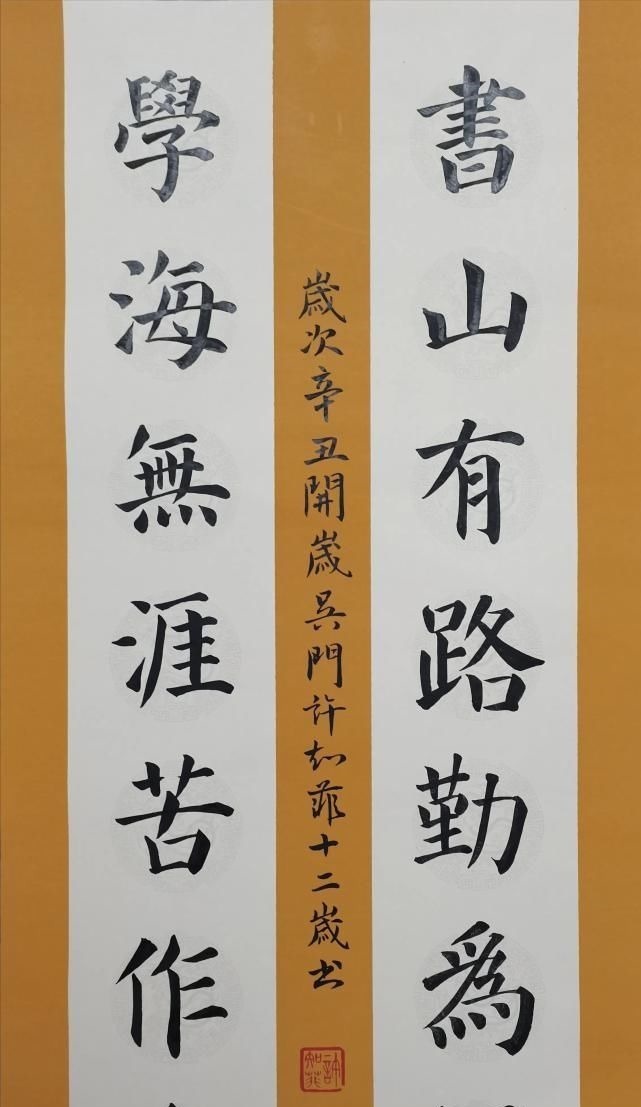 書山有路勤為
學海無涯苦作
歲次辛丑開歲吳門許知菲十二歲书
許知菲